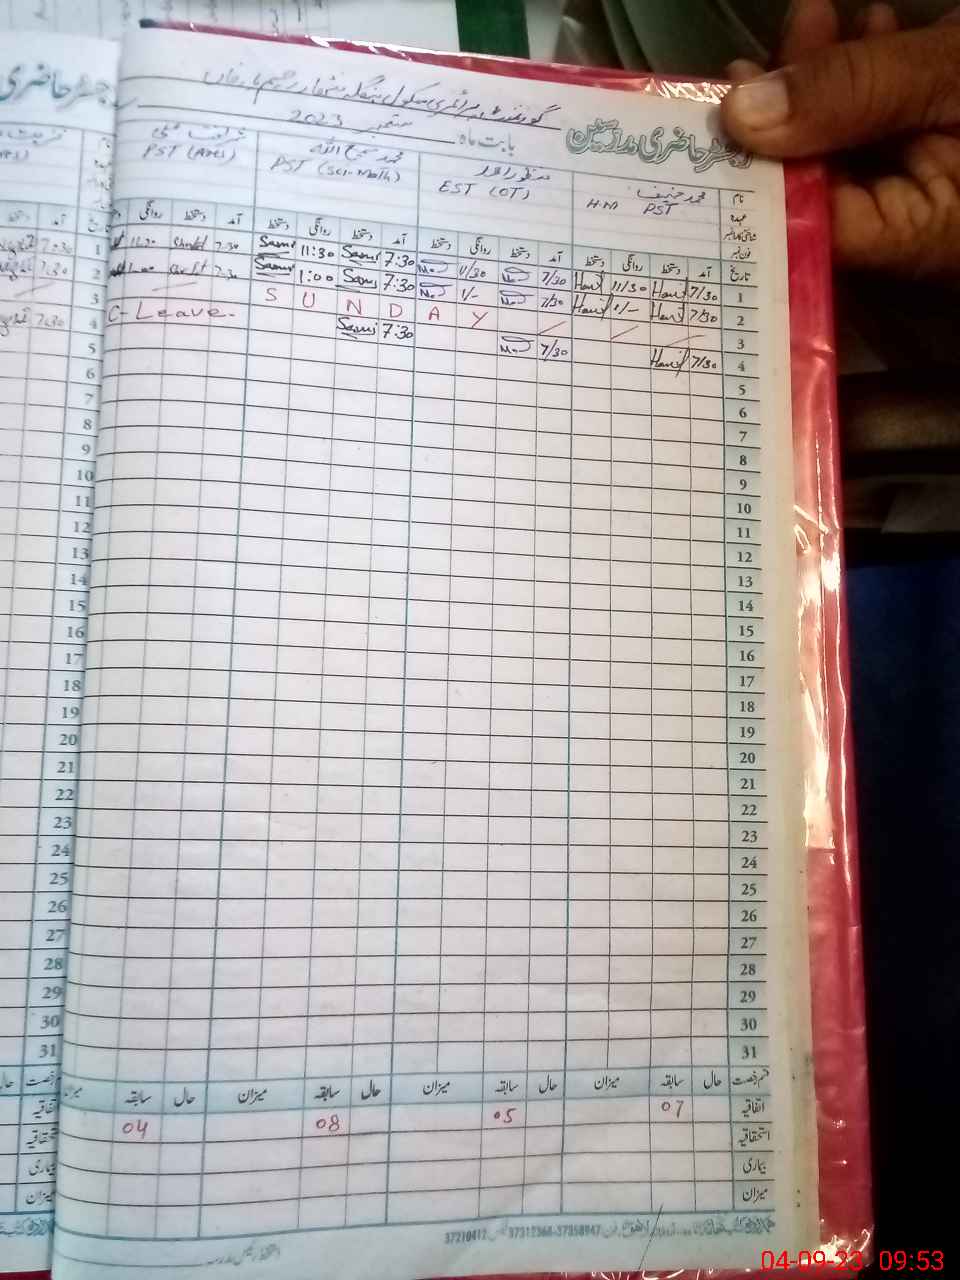 رجسٹر حاضری مدرسین
گورنمنٹ پرائمری سکول بنگلہ منٹھار رحیم یار خاں
بابت ماہ ستمبر 2023
نام محمد حنیف منظور احمد محمد سمیع اللہ
عہدہ H.M PST EST (OT) PST (Sci-Math) PST (Arts)
شناختی کارڈ نمبر
فون نمبر
تاریخ آمد دستخط روانگی دستخط آمد دستخط روانگی دستخط آمد دستخط روانگی دستخط آمد دستخط روانگی
1 7/30 Hanif 11/30 Hanif 7/30 11/30 7:30 Sami 11:30 Sami 7:30 11:30
2 7/30 Hanif 1/- Hanif 7/30 1/- 7:30 Sami 1:00 Sami 7:30 1:00
3 S U N D A Y
4 7/30 Hanif 7/30 7:30 Sami C-Leave.
5
6
7
8
9
10
11
12
13
14
15
16
17
18
19
20
21
22
23
24
25
26
27
28
29
30
31
قسم رخصت حال سابقہ میزان حال سابقہ میزان حال سابقہ میزان حال سابقہ میزان
اتفاقیہ 07 05 08 04
استحقاقیہ
بیماری
میزان
37210412 37312368-37358047
دستخط رئیس مدرسہ
04-09-23 09:53